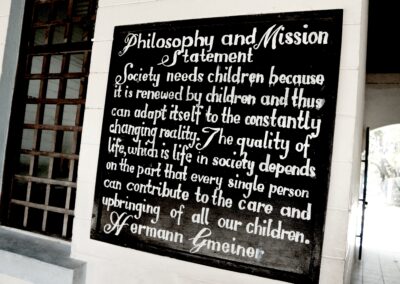 Philosophy and Mission
Statement
Society needs children because
it is renewed by children and thus
can adapt itself to the constantly
changing reality. The quality of
life, which is life in society depends
on the part that every single person
can contribute to the care and
upbringing of all our children.
Hermann Gmeiner